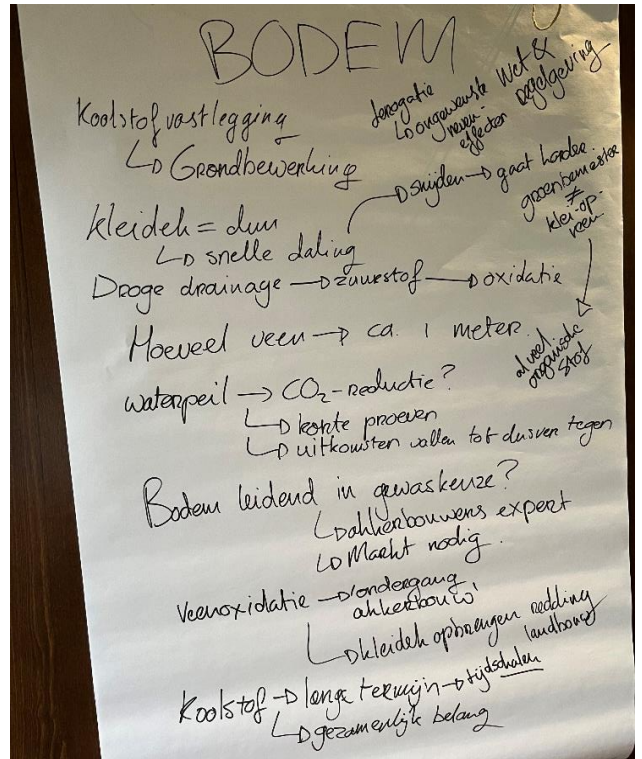 BODEM
Koolstofvastlegging
↳ Grondbewerking
derogatie
↳ ongewenste
neven-
effecten
Wet &
regelgeving
kleidek = dun
↳ snelle daling
→ snijden → gaat harder
groenbemester
≠
klei-op-
veen
al veel
organische
stof
Droge drainage → zuurstof → oxidatie
Hoeveel veen → ca. 1 meter.
waterpeil → CO₂-reductie?
↳ korte proeven
↳ uitkomsten vallen tot dusver tegen
Bodem leidend in gewaskeuze?
↳ akkerbouwers expert
↳ Markt nodig.
Veenoxidatie → 'ondergang
akkerbouw'
↳ kleidek opbrengen redding
landbouw
Koolstof → lange termijn → tijdschalen
↳ gezamenlijk belang